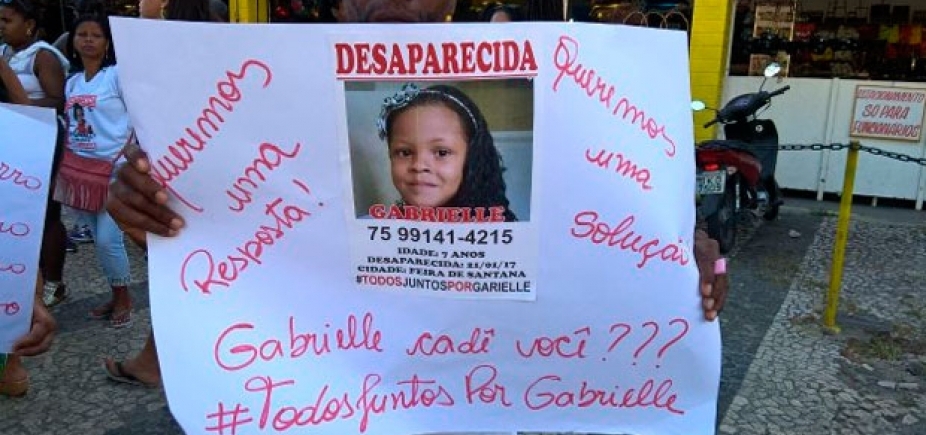 DESAPARECIDA
Queremos
uma
Resposta!
Queremos
uma
Solução
GABRIELLE
75 99141-4215
IDADE: 7 ANOS
DESAPARECIDA: 21/01/17
CIDADE: FEIRA DE SANTANA
#TODOSJUNTOSPORGARIELLE
Gabrielle cadê você???
#TodosJuntos Por Gabrielle
ESTACIONAMENTO
SÓ PARA
FUNCIONÁRIOS